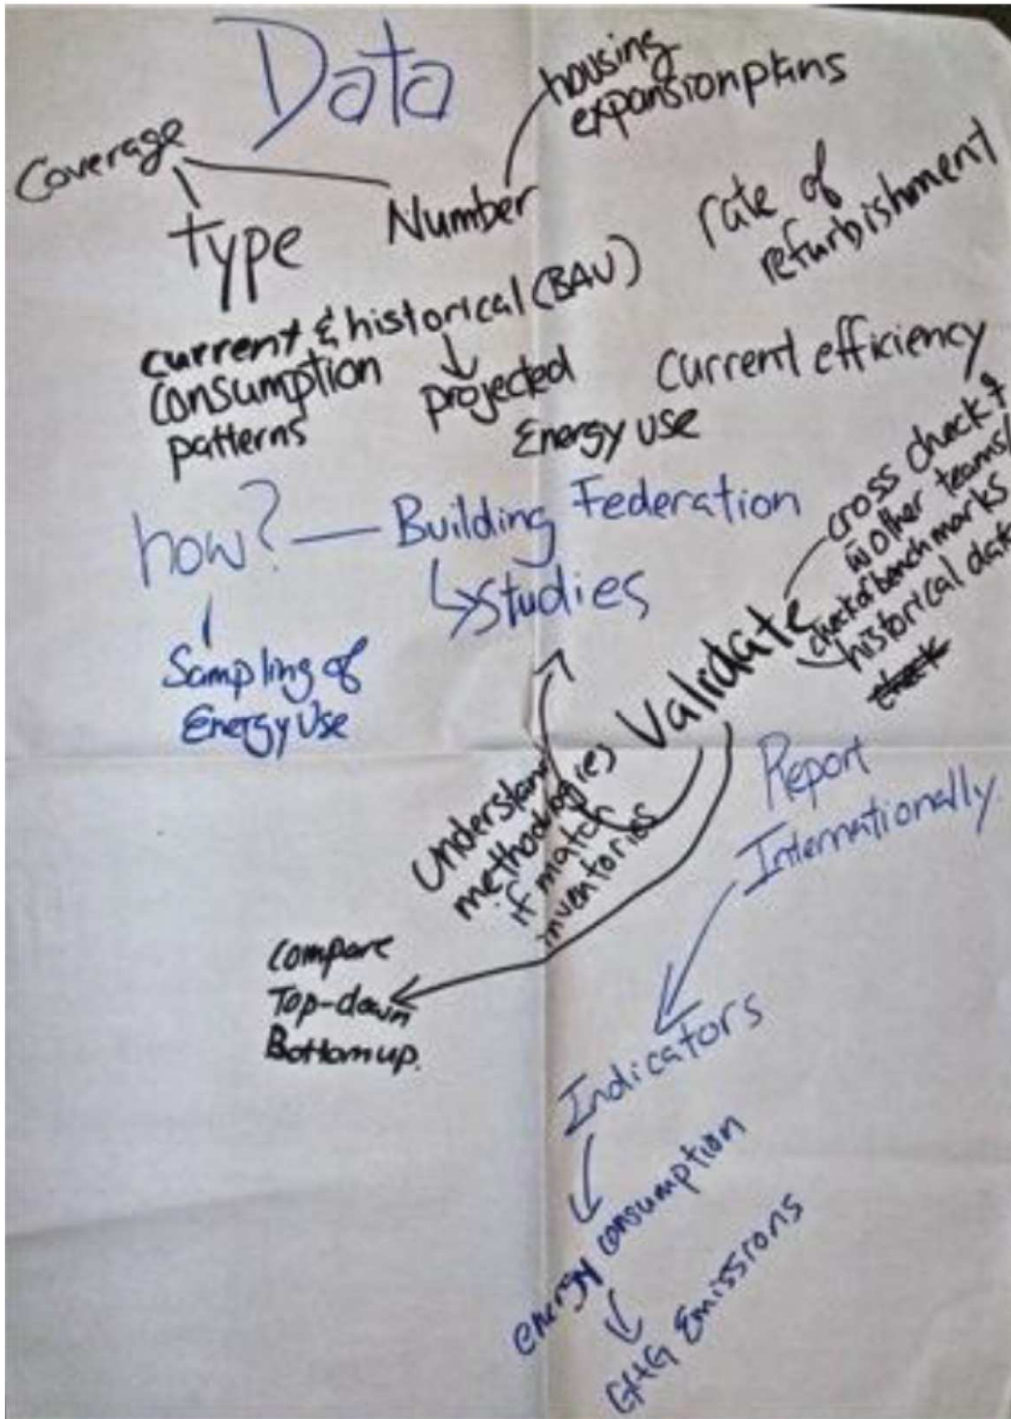 Data
housing
expansion plans
Coverage
Type
Number
rate of
refurbishment
current & historical (BAU)
consumption
patterns
projected
Energy use
Current efficiency
how? — Building Federation
↳ studies
Sampling of
Energy Use
Validate
cross check
w other teams/
check of benchmarks
historical data
Understand
methodologies
if match
inventories
Compare
Top-down
Bottom up.
Report
Internationally.
Indicators
energy consumption
GHG Emissions